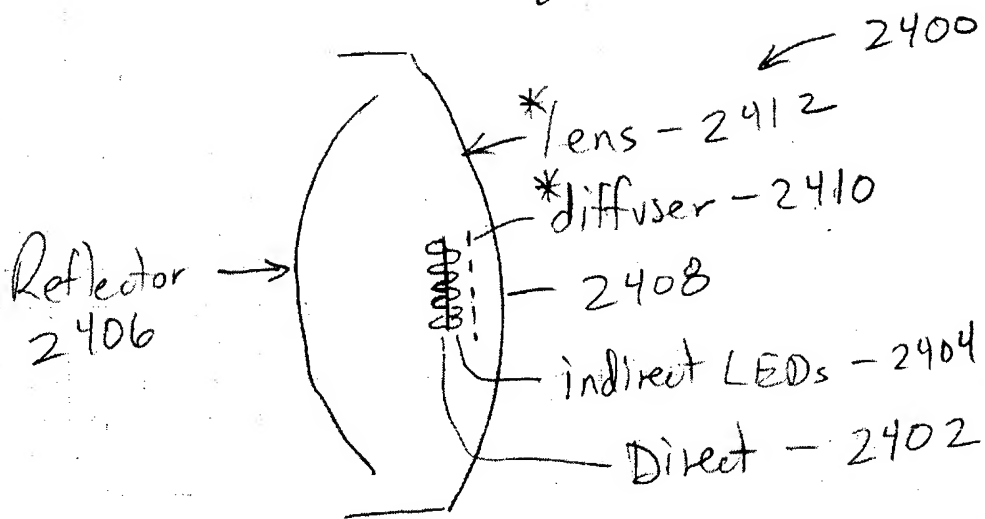 2400
*lens - 2412
*diffuser - 2410
Reflector
2406
2408
indirect LEDs - 2404
Direct - 2402